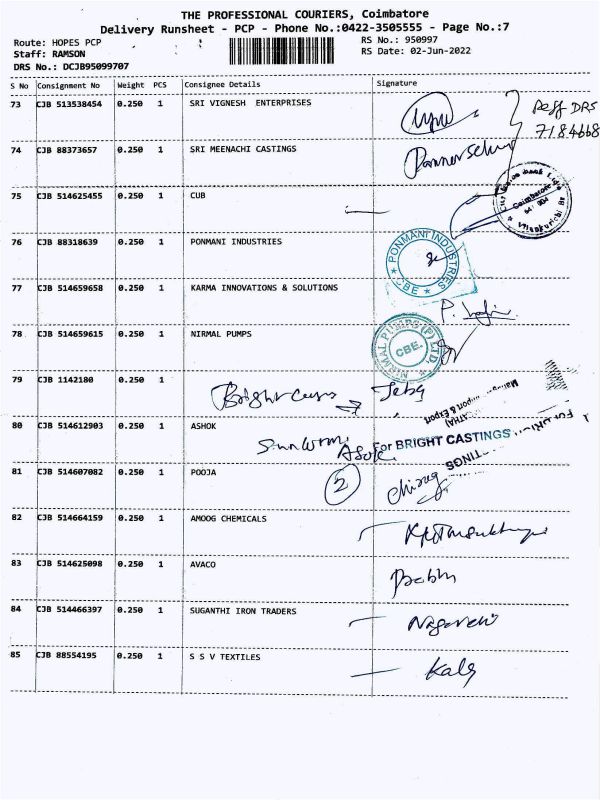 THE PROFESSIONAL COURIERS, Coimbatore
Delivery Runsheet - PCP - Phone No.:0422-3505555 - Page No.:7
Route: HOPES PCP
RS No.: 950997
Staff: RAMSON
RS Date: 02-Jun-2022
DRS No.: DCJB95099707
S No Consignment No Weight PCS Consignee Details Signature
73 CJB 513538454 0.250 1 SRI VIGNESH ENTERPRISES
DRS
7184668
74 CJB 88373657 0.250 1 SRI MEENACHI CASTINGS
Ponnerselvy
75 CJB 514625455 0.250 1 CUB
Coimbatore
76 CJB 88318639 0.250 1 PONMANI INDUSTRIES
PONMANI INDUSTRIES
★ CBE ★
77 CJB 514659658 0.250 1 KARMA INNOVATIONS & SOLUTIONS
78 CJB 514659615 0.250 1 NIRMAL PUMPS
NIRMAL PUMPS (P) LTD.
CBE.
79 CJB 1142180 0.250 1
Import & Export
80 CJB 514612903 0.250 1 ASHOK
For BRIGHT CASTINGS
81 CJB 514607082 0.250 1 POOJA
2
Chirag
82 CJB 514664159 0.250 1 AMOOG CHEMICALS
83 CJB 514625098 0.250 1 AVACO
84 CJB 514466397 0.250 1 SUGANTHI IRON TRADERS
85 CJB 88554195 0.250 1 S S V TEXTILES